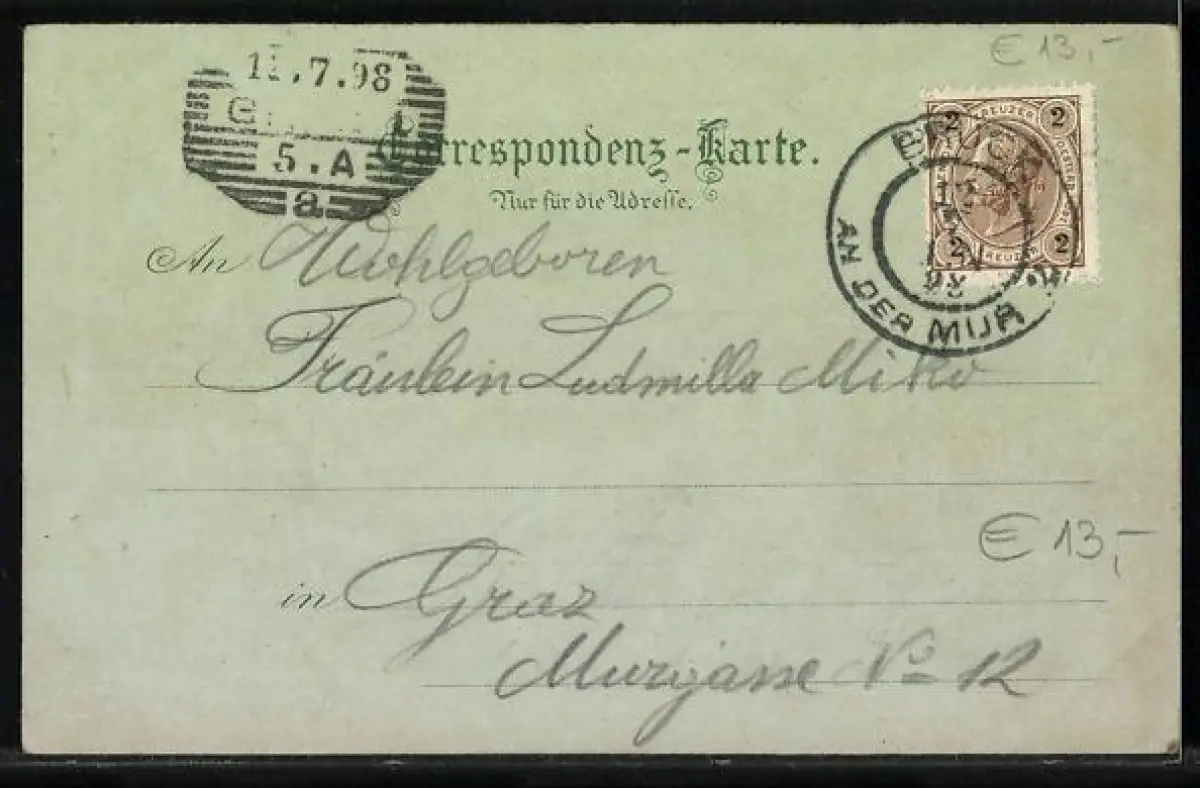 € 13,-
11.7.98
5.A
a
Correspondenz-Karte.
Nur für die Adresse.
2 KREUZER 2
2 KREUZER 2
BRUCK
AN DER MUR
98
An Wohlgeboren
Fräulein Ludmilla Miko
€ 13,-
in Graz
Murgasse No 12